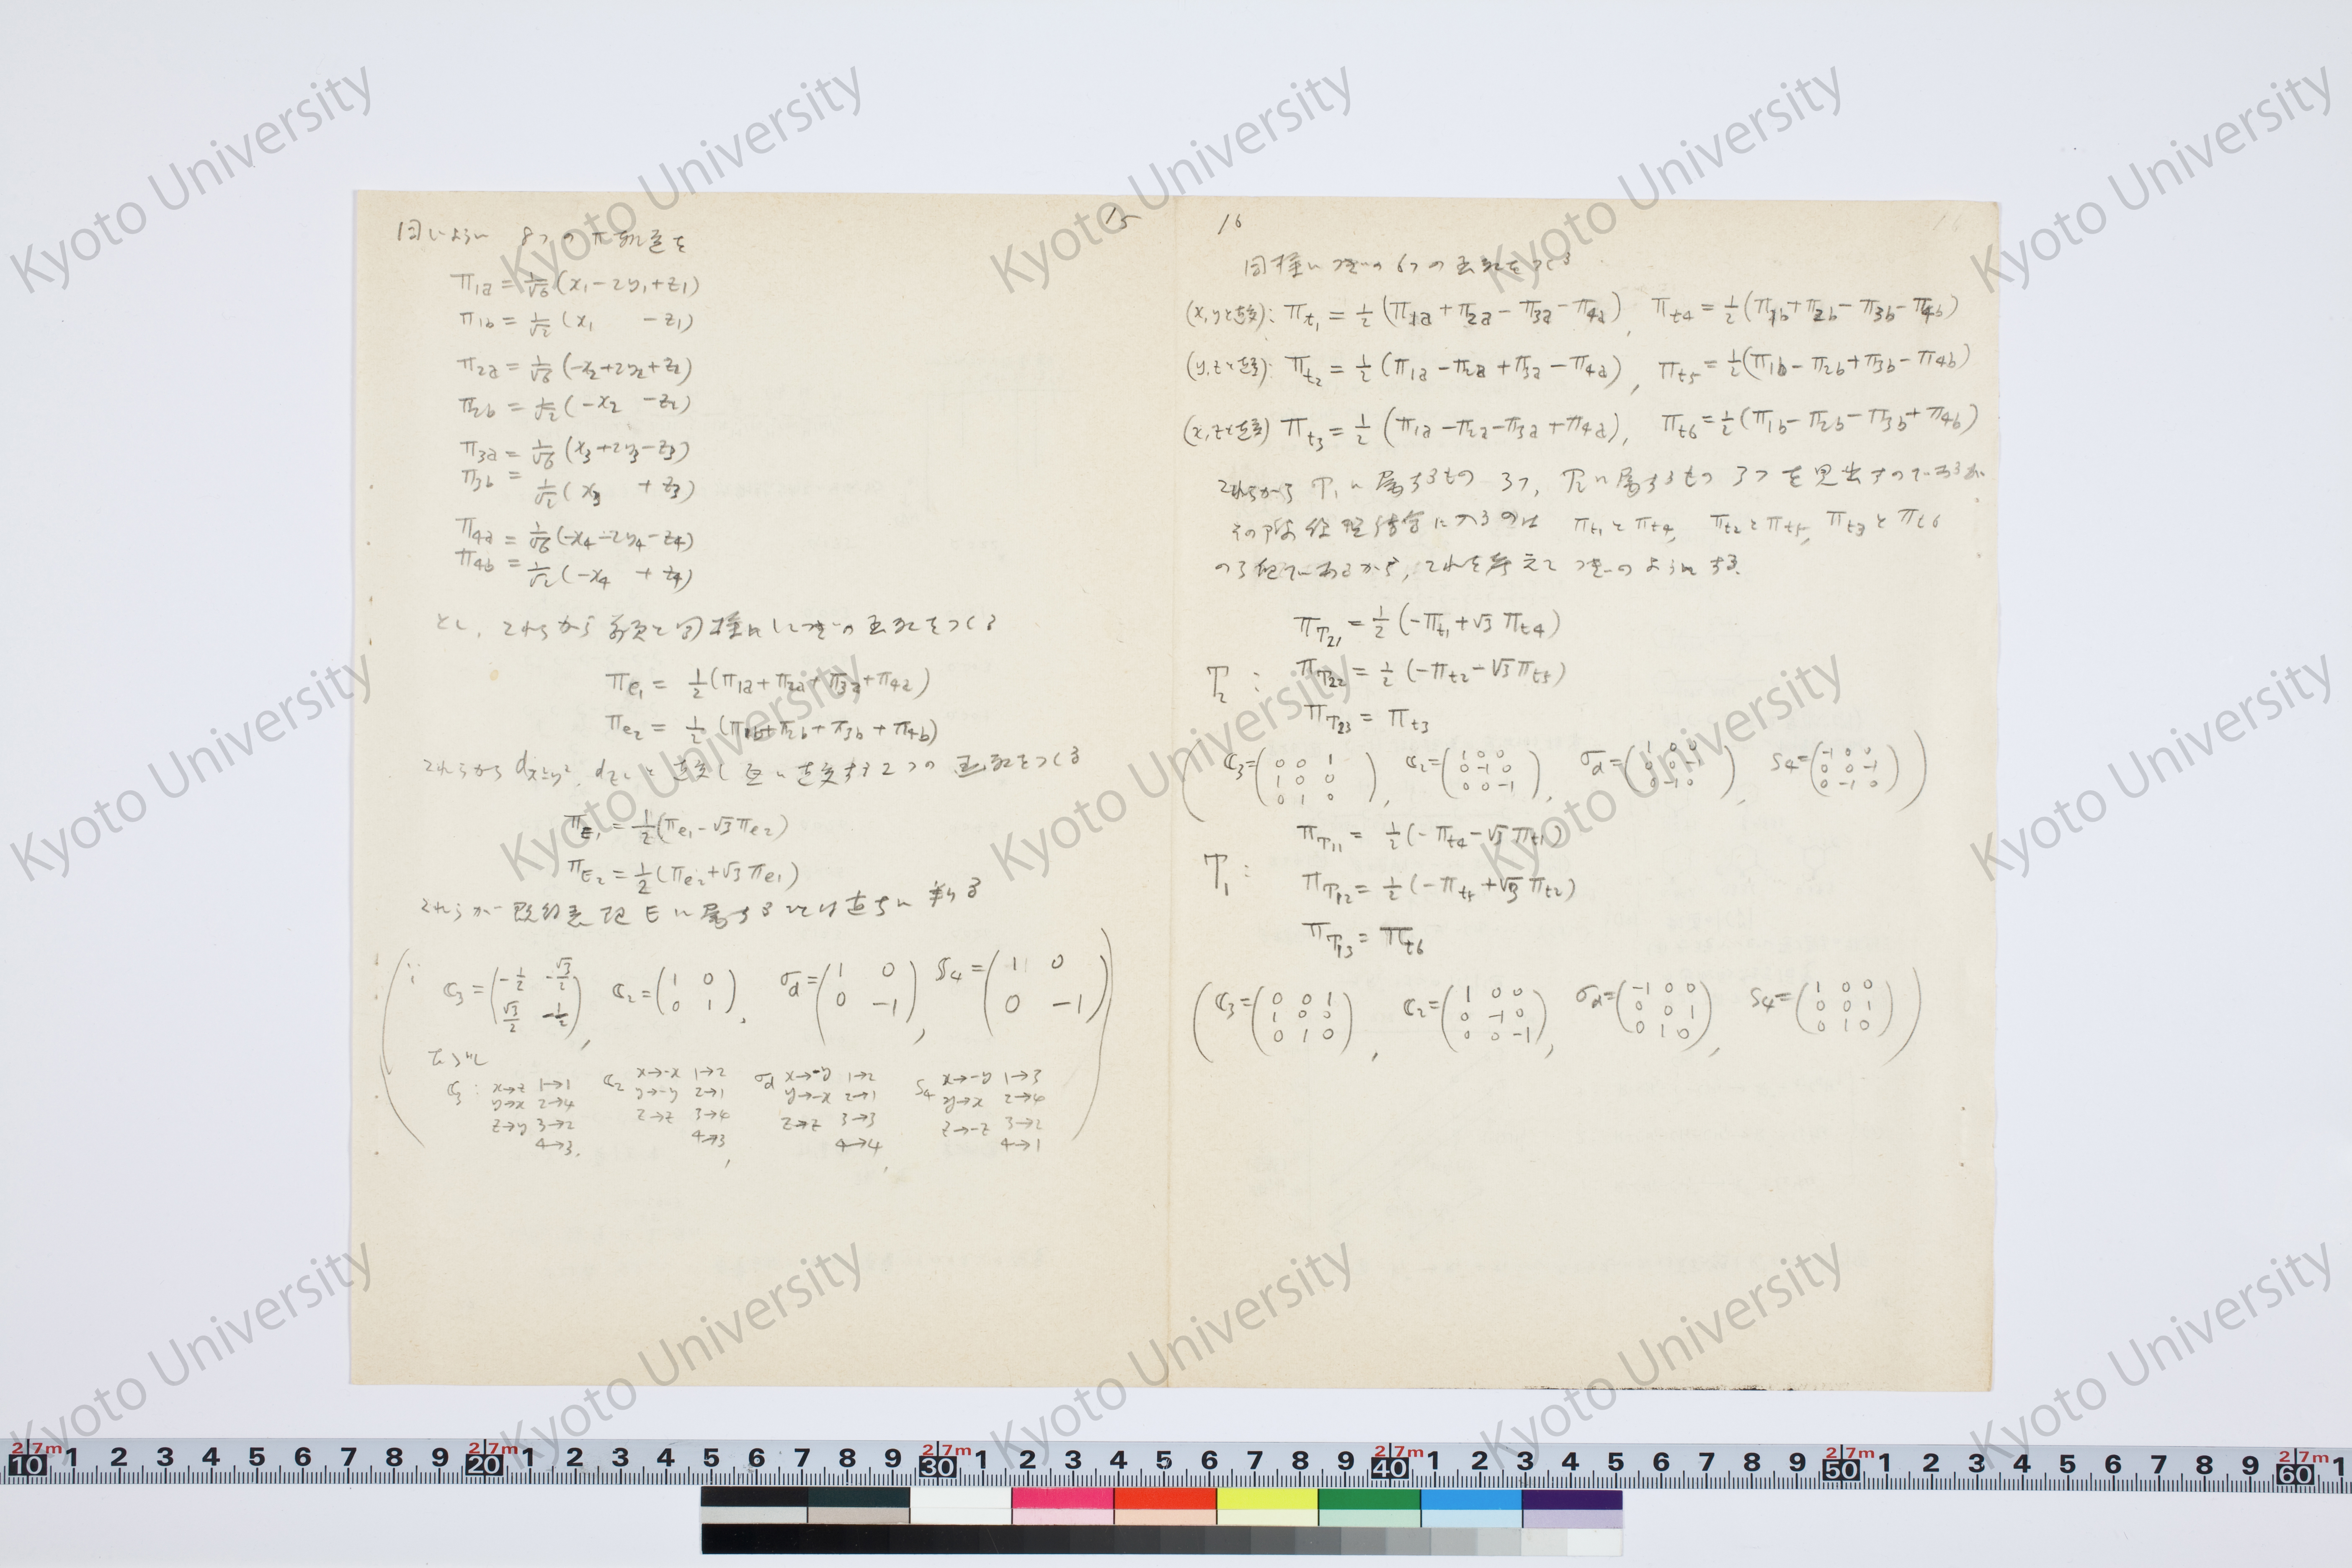 15
同じように 8つの π軌道を
π1a = 1/√6 (x1 - 2y1 + z1)
π1b = 1/√2 (x1 - z1)
π2a = 1/√6 (-x2 + 2y2 + z2)
π2b = 1/√2 (-x2 - z2)
π3a = 1/√6 (x3 + 2y3 - z3)
π3b = 1/√2 (x3 + z3)
π4a = 1/√6 (-x4 - 2y4 - z4)
π4b = 1/√2 (-x4 + z4)
とし、これらから 前頁と同様にしてつぎの函数をつくる
πe1 = 1/2 (π1a + π2a + π3a + π4a)
πe2 = 1/2 (π1b + π2b + π3b + π4b)
これらから dx²-y², dz² と直交し互に直交する 2つの函数をつくる
πE1 = 1/2 (πe1 - √3 πe2)
πE2 = 1/2 (πe2 + √3 πe1)
これらが既約表現 E に属することは直ちに判る
( ∵ C3 = (-1/2 -√3/2 / √3/2 -1/2), C2 = (1 0 / 0 1), σd = (1 0 / 0 -1), S4 = (1 0 / 0 -1)
ただし
C3: x→z 1→1 C2 x→-x 1→2 σd x→-y 1→2 S4 x→-y 1→3
y→x 2→4 y→-y 2→1 y→-x 2→1 y→x 2→4
z→y 3→2 z→z 3→4 z→z 3→3 z→-z 3→2
4→3, 4→3, 4→4, 4→1 )
16
同様につぎの 6つの函数をつくる
(x, yと直交): πt1 = 1/2 (π1a + π2a - π3a - π4a), πt4 = 1/2 (π1b + π2b - π3b - π4b)
(y, zと直交): πt2 = 1/2 (π1a - π2a + π3a - π4a), πt5 = 1/2 (π1b - π2b + π3b - π4b)
(x, zと直交) πt3 = 1/2 (π1a - π2a - π3a + π4a), πt6 = 1/2 (π1b - π2b - π3b + π4b)
これらから T1に属するもの 3つ, T2に属するもの 3つを見出すのであるが
その際 結合に入るのは πt1とπt4, πt2とπt5, πt3とπt6
の3組であるから, これを考えて つぎのようにする.
πT21 = 1/2 (-πt1 + √3 πt4)
T2 : πT22 = 1/2 (-πt2 - √3 πt5)
πT23 = πt3
( C3 = (0 0 1 / 1 0 0 / 0 1 0), C2 = (1 0 0 / 0 -1 0 / 0 0 -1), σd = (1 0 0 / 0 0 -1 / 0 -1 0), S4 = (-1 0 0 / 0 0 -1 / 0 -1 0) )
πT11 = 1/2 (-πt4 - √3 πt1)
T1 : πT12 = 1/2 (-πt5 + √3 πt2)
πT13 = πt6
( C3 = (0 0 1 / 1 0 0 / 0 1 0), C2 = (1 0 0 / 0 -1 0 / 0 0 -1), σd = (-1 0 0 / 0 0 1 / 0 1 0), S4 = (1 0 0 / 0 0 1 / 0 1 0) )
Kyoto University